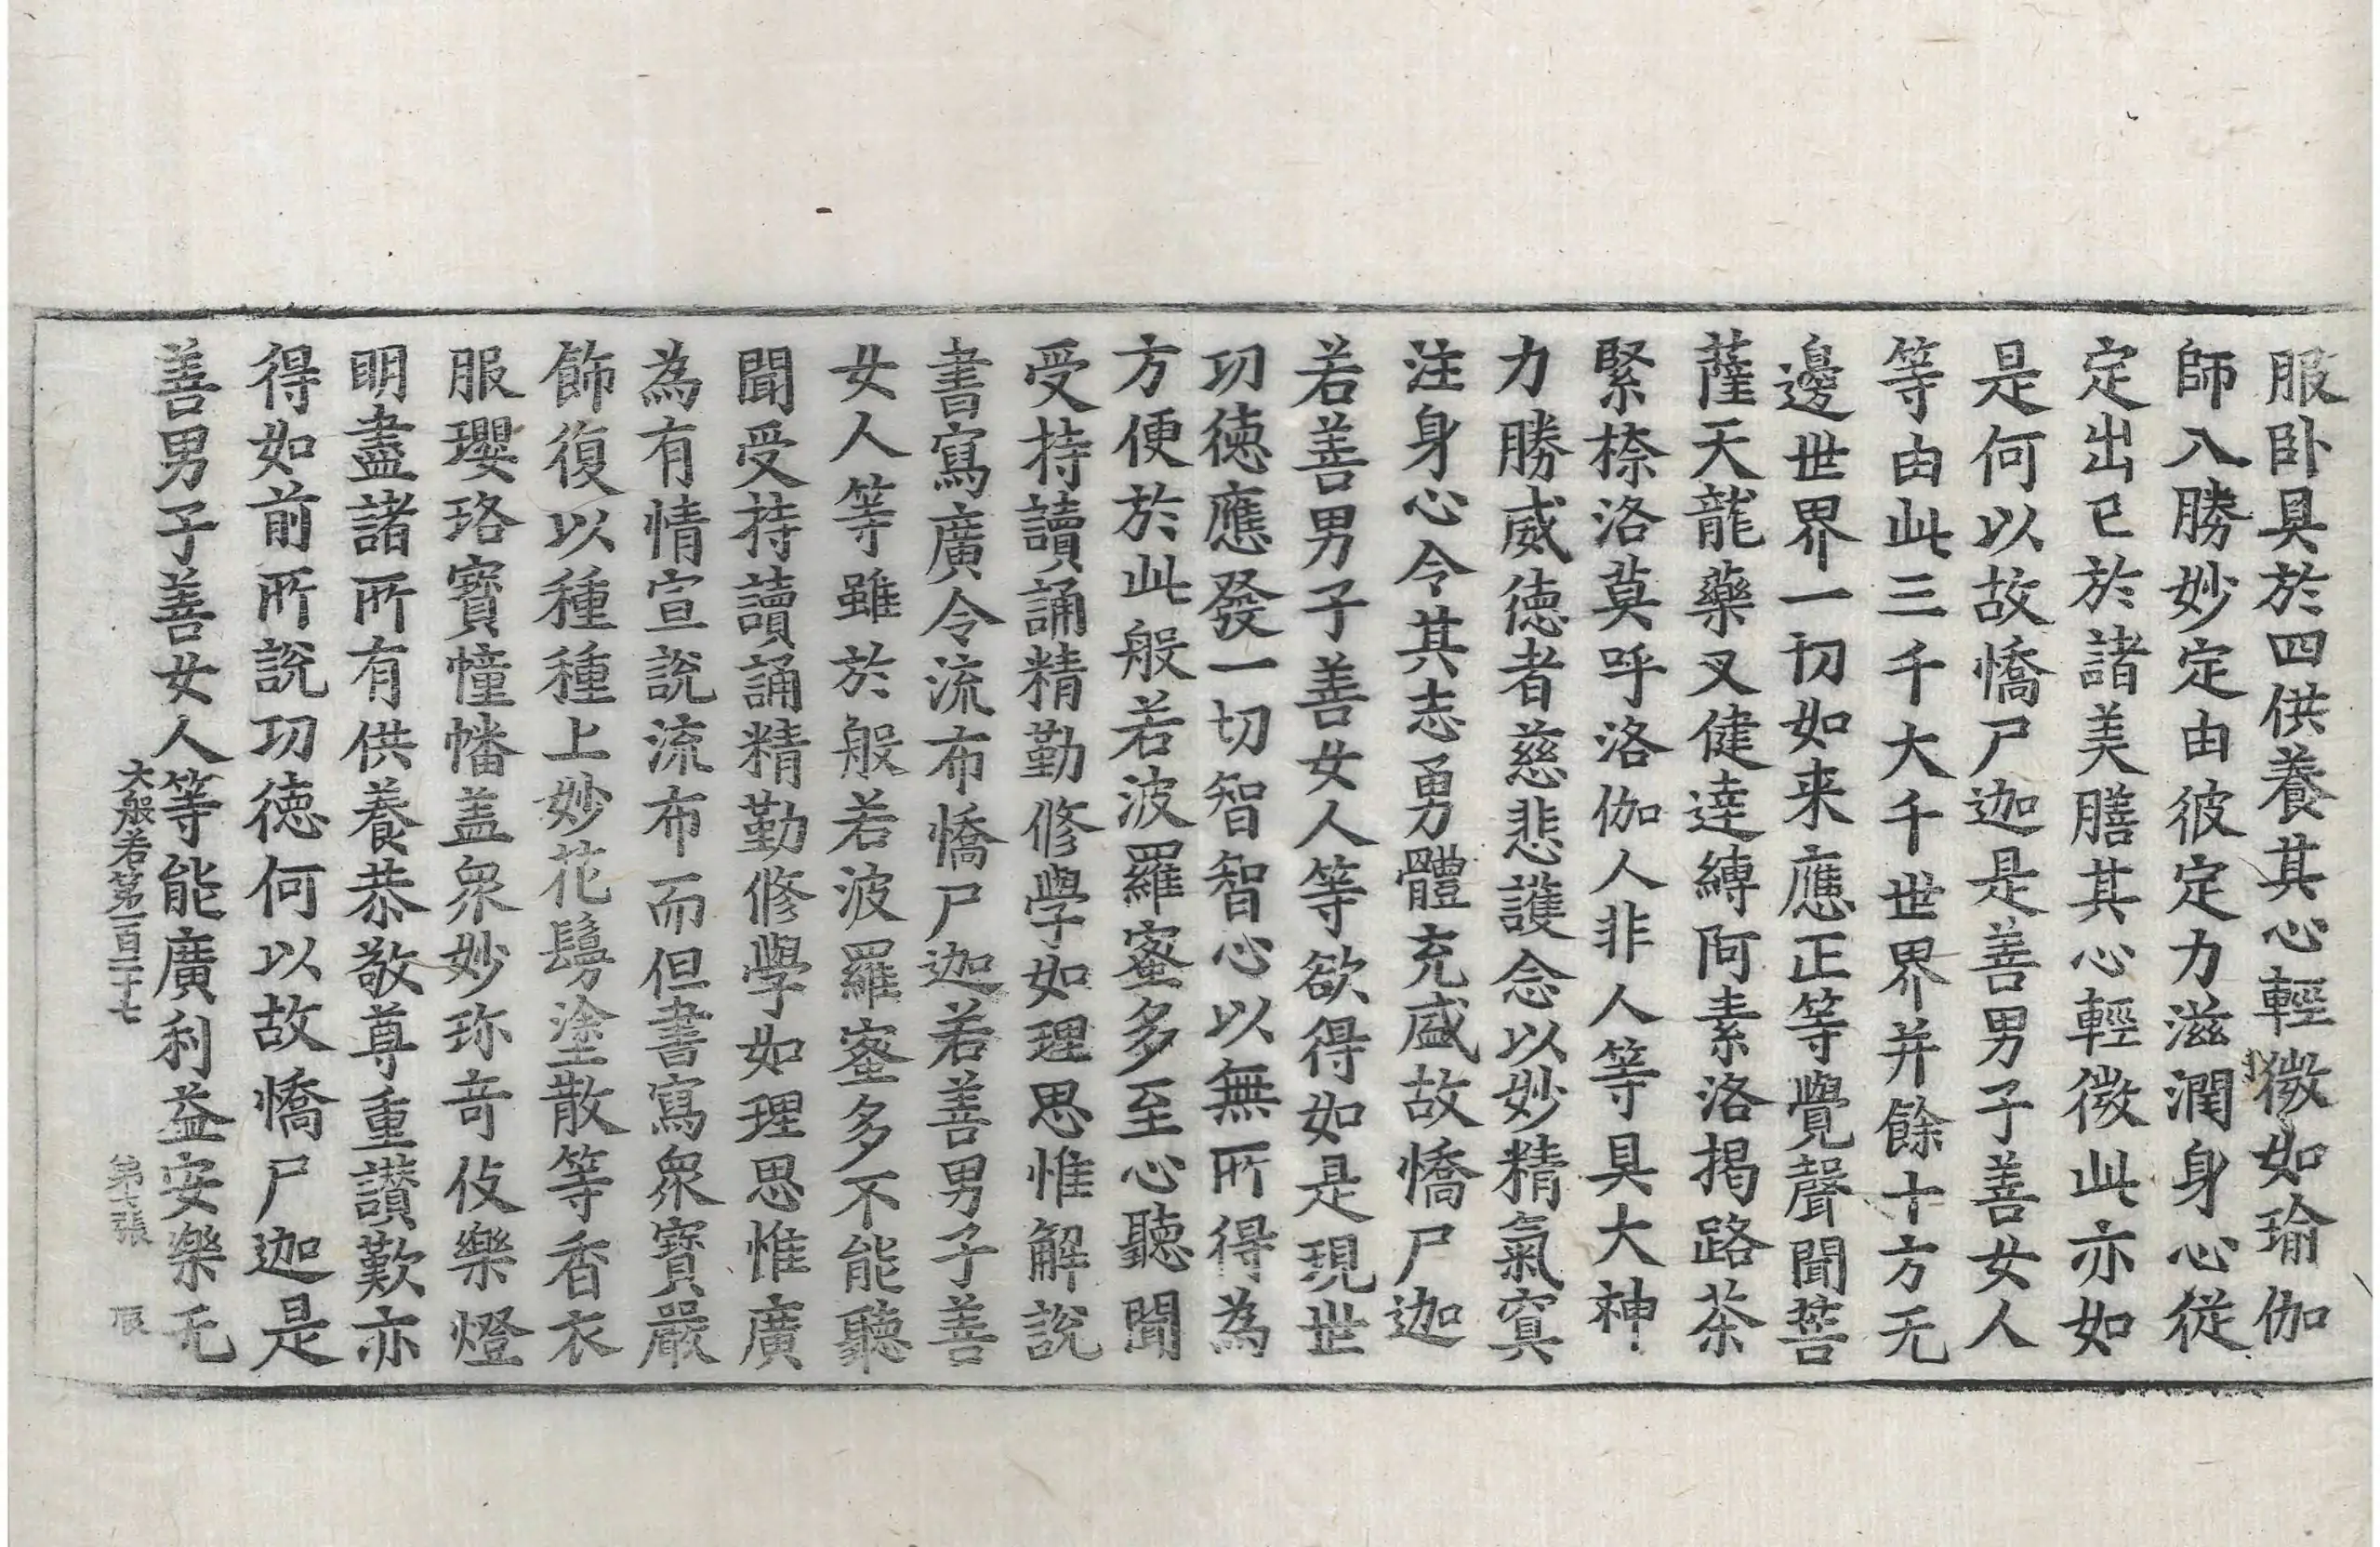 服卧具於四供養其心輕微如瑜伽
師入勝妙定由彼定力滋潤身心從
定出已於諸美膳其心輕微此亦如
是何以故憍尸迦是善男子善女人
等由此三千大千世界并餘十方无
邊世界一切如来應正等覺聲聞菩
薩天龍藥叉健達縛阿素洛揭路荼
緊捺洛莫呼洛伽人非人等具大神
力勝威德者慈悲護念以妙精氣㝠
注身心令其志勇體充盛故憍尸迦
若善男子善女人等欲得如是現世
功德應發一切智智心以無所得為
方便於此般若波羅蜜多至心聽聞
受持讀誦精勤修學如理思惟解說
書寫廣令流布憍尸迦若善男子善
女人等雖於般若波羅蜜多不能聽
聞受持讀誦精勤修學如理思惟廣
為有情宣說流布而但書寫衆寶嚴
飾復以種種上妙花鬘塗散等香衣
服瓔珞寶幢幡盖衆妙珎奇伎樂燈
明盡諸所有供養恭敬尊重讃歎亦
得如前所說功德何以故憍尸迦是
善男子善女人等能廣利益安樂无
大般若第一百二十七 第七張 辰